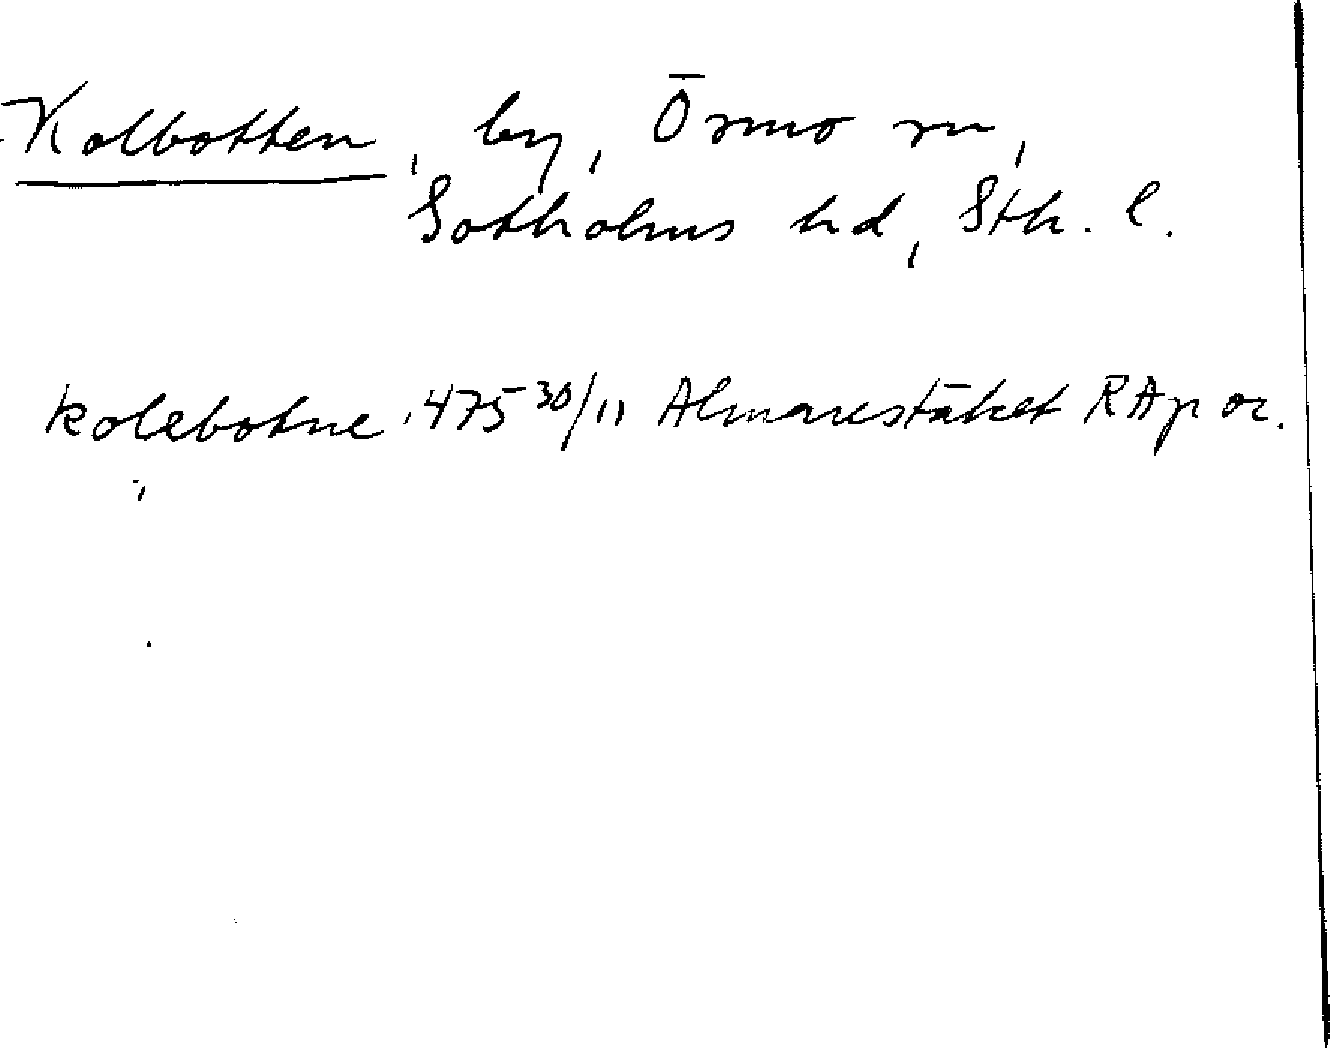 Kolbotten, by, Ösmo sn,
Sotholms hd, Sth. l.
kolebotne 1475 30/11 Almarestäket RAp or.